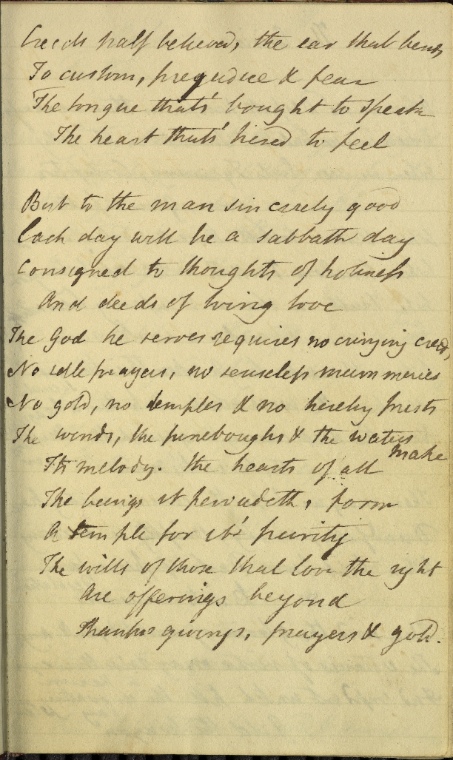 Creeds half believed, the ear that bends
To custom, prejudice & fear
The tongue that's bought to speak
The heart that's hired to feel
But to the man sincerely good
Each day will be a sabbath day
Consigned to thoughts of holiness
And deeds of living love
The God he serves requires no cringing creed,
No idle prayers, no senseless mummeries
No gold, no temples & no hireling priests
The winds, the pineboughs & the waters make
Its melody. the hearts of all
The beings it pervadeth, form
A temple for it's purity
The wills of those that love the right
Are offerings beyond
Thanksgivings, prayers & gold.